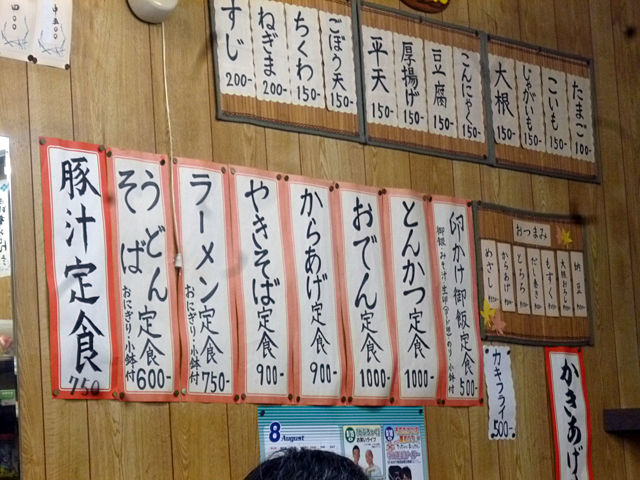 たまご 100-
こいも 150-
じゃがいも 150-
大根 150-
こんにゃく 150-
豆腐 150-
厚揚げ 150-
平天 150-
ごぼう天 150-
ちくわ 150-
ねぎま 200-
すじ 200-
おつまみ
納豆
大根おろし
もずく
だし巻き
とろろ
からあげ
めざし
卯かけ御飯定食 500-
とんかつ定食 1000-
おでん定食 1000-
からあげ定食 900-
やきそば定食 900-
ラーメン定食 750-
おにぎり・小鉢付
うどん
そば
定食 600-
おにぎり・小鉢付
豚汁定食 750
カキフライ 500-
かきあげ
8 August